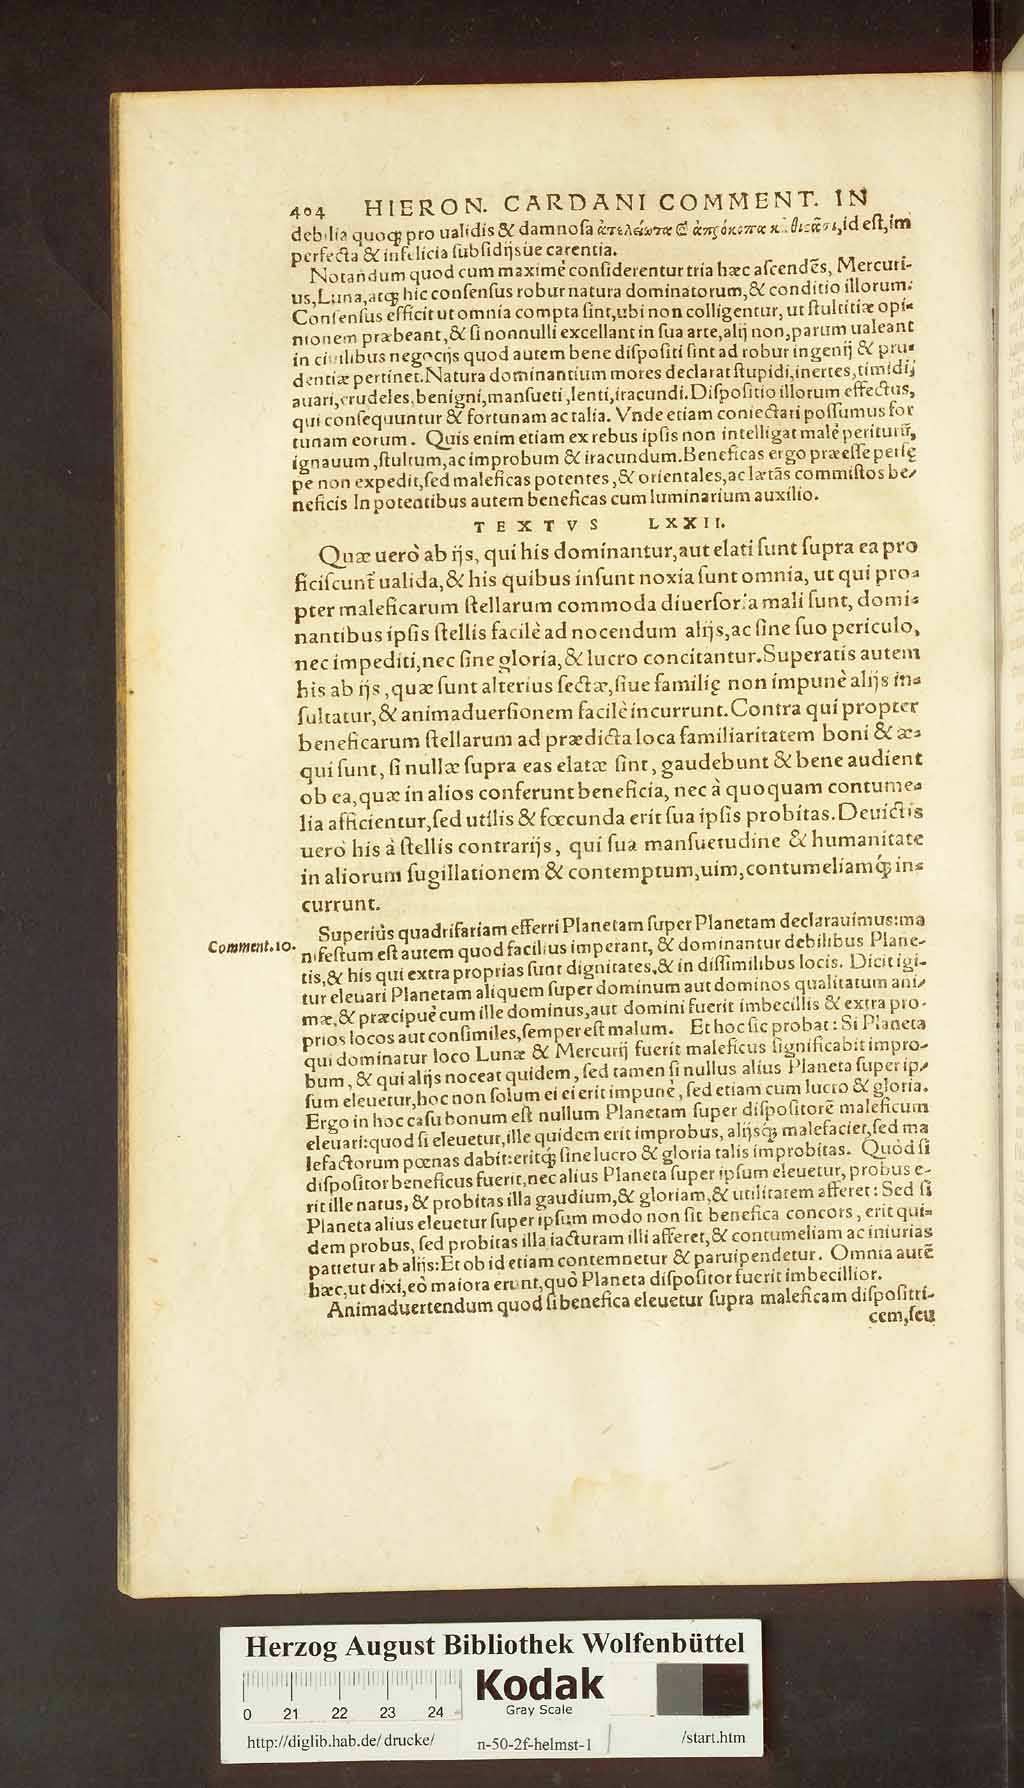 404 HIERON. CARDANI COMMENT. IN
debilia quoqȝ pro ualidis & damnosa ἀτελείωτα & id est, im
perfecta & infelicia subsidijsue carentia.
Notandum quod cum maximè considerentur tria hæc ascendẽs, Mercuri-
us, Luna, atqȝ hic consensus robur natura dominatorum, & conditio illorum.
Consensus efficit ut omnia compta sint, ubi non colligentur, ut stultitiæ opi-
nionem præbeant, & si nonnulli excellant in sua arte, alij non, parum ualeant
in ciuilibus negocijs quod autem bene dispositi sint ad robur ingenij & pru-
dentiæ pertinet. Natura dominantium mores declarat stupidi, inertes, timidi,
auari, crudeles, benigni, mansueti, lenti, iracundi. Dispositio illorum effectus,
qui consequuntur & fortunam ac talia. Vnde etiam coniectari possumus for
tunam eorum. Quis enim etiam ex rebus ipsis non intelligat malè periturũ,
ignauum, stultum, ac improbum & iracundum. Beneficas ergo præesse persę
pe non expedit, sed maleficas potentes, & orientales, ac lætãs commistos be-
neficis In potentibus autem beneficas cum luminarium auxilio.
TEXTVS LXXII.
Quæ uerò ab ijs, qui his dominantur, aut elati sunt supra ea pro
ficiscunt̃ ualida, & his quibus insunt noxia sunt omnia, ut qui pro-
pter maleficarum stellarum commoda diuersoria mali sunt, domi-
nantibus ipsis stellis facilè ad nocendum alijs, ac sine suo periculo,
nec impediti, nec sine gloria, & lucro concitantur. Superatis autem
his ab ijs, quæ sunt alterius sectæ, siue familię non impunè alijs in-
sultatur, & animaduersionem facilè incurrunt. Contra qui propter
beneficarum stellarum ad prædicta loca familiaritatem boni & æ-
qui sunt, si nullæ supra eas elatæ sint, gaudebunt & bene audient
ob ea, quæ in alios conferunt beneficia, nec à quoquam contume-
lia afficientur, sed utilis & fœcunda erit sua ipsis probitas. Deuictis
uerò his à stellis contrarijs, qui sua mansuetudine & humanitate
in aliorum sugillationem & contemptum, uim, contumeliamq́ȝ in-
currunt.
Comment. 10.
Superiùs quadrifariam efferri Planetam super Planetam declarauimus: ma
nifestum est autem quod facilius imperant, & dominantur debilibus Plane-
tis, & his qui extra proprias sunt dignitates, & in dissimilibus locis. Dicit igi-
tur eleuari Planetam aliquem super dominum aut dominos qualitatum ani-
mæ, & præcipuè cum ille dominus, aut domini fuerit imbecillis & extra pro-
prios locos aut consimiles, semper est malum. Et hoc sic probat: Si Planeta
qui dominatur loco Lunæ & Mercurij fuerit maleficus significabit impro-
bum, & qui alijs noceat quidem, sed tamen si nullus alius Planeta super ip-
sum eleuetur, hoc non solum ei ei erit impunè, sed etiam cum lucro & gloria.
Ergo in hoc casu bonum est nullum Planetam super dispositorẽ maleficum
eleuari: quod si eleuetur, ille quidem erit improbus, alijsq́ȝ malefaciet, sed ma
lefactorum pœnas dabit: eritq́ȝ sine lucro & gloria talis improbitas. Quòd si
dispositor beneficus fuerit, nec alius Planeta super ipsum eleuetur, probus e-
rit ille natus, & probitas illa gaudium, & gloriam, & utilitatem afferet: Sed si
Planeta alius eleuetur super ipsum modo non sit benefica concors, erit qui-
dem probus, sed probitas illa iacturam illi afferet, & contumeliam ac iniurias
patietur ab alijs: Et ob id etiam contemnetur & paruipendetur. Omnia autẽ
hæc, ut dixi, eò maiora erunt, quò Planeta dispositor fuerit imbecillior.
Animaduertendum quod si benefica eleuetur supra maleficam dispositri-
cem, seu
Herzog August Bibliothek Wolfenbüttel
Kodak
Gray Scale
0 21 22 23 24
http://diglib.hab.de/drucke/ n-50-2f-helmst-1 /start.htm